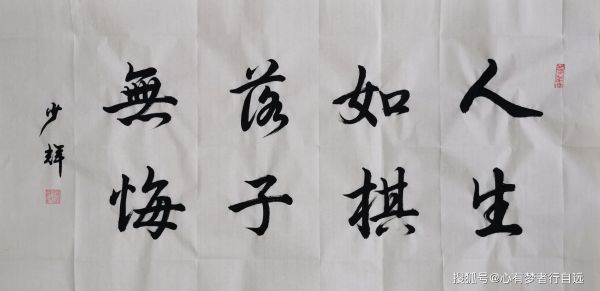 人生
如棋
落子
無悔
少輝
搜狐号@心有梦者行自远